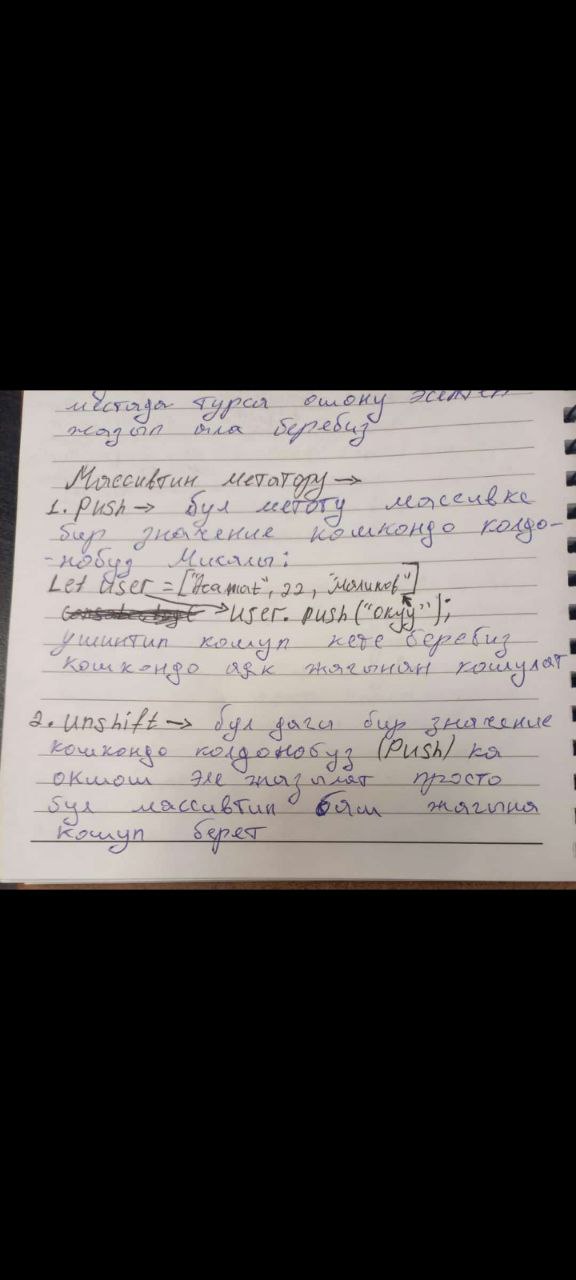 местада турса ошону эсептеп
жазып ала беребиз
Массивтин метатору →
1. Push → бул метоту массивке
бир значение кошкондо колдо-
-нобуз Мисалы:
Let user = ["Асамат", 22, "Маликов"]
→ user.push("окуу");
ушинтип кошуп кете беребиз
кошкондо аяк жагынан кошулат
2. unshift → бул дагы бир значение
кошкондо колдонобуз (Push) ка
окшош эле жазылат просто
бул массивтин баш жагына
кошуп берет